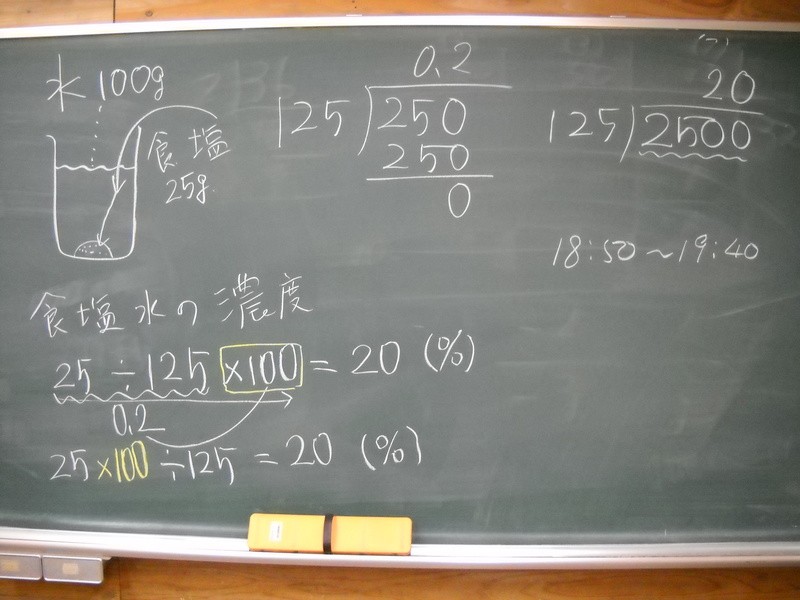 水 100g
食塩
25g
0.2
125)250
250
0
20
125)2500
18:50～19:40
食塩水の濃度
25÷125×100=20(%)
0.2
25×100÷125=20(%)